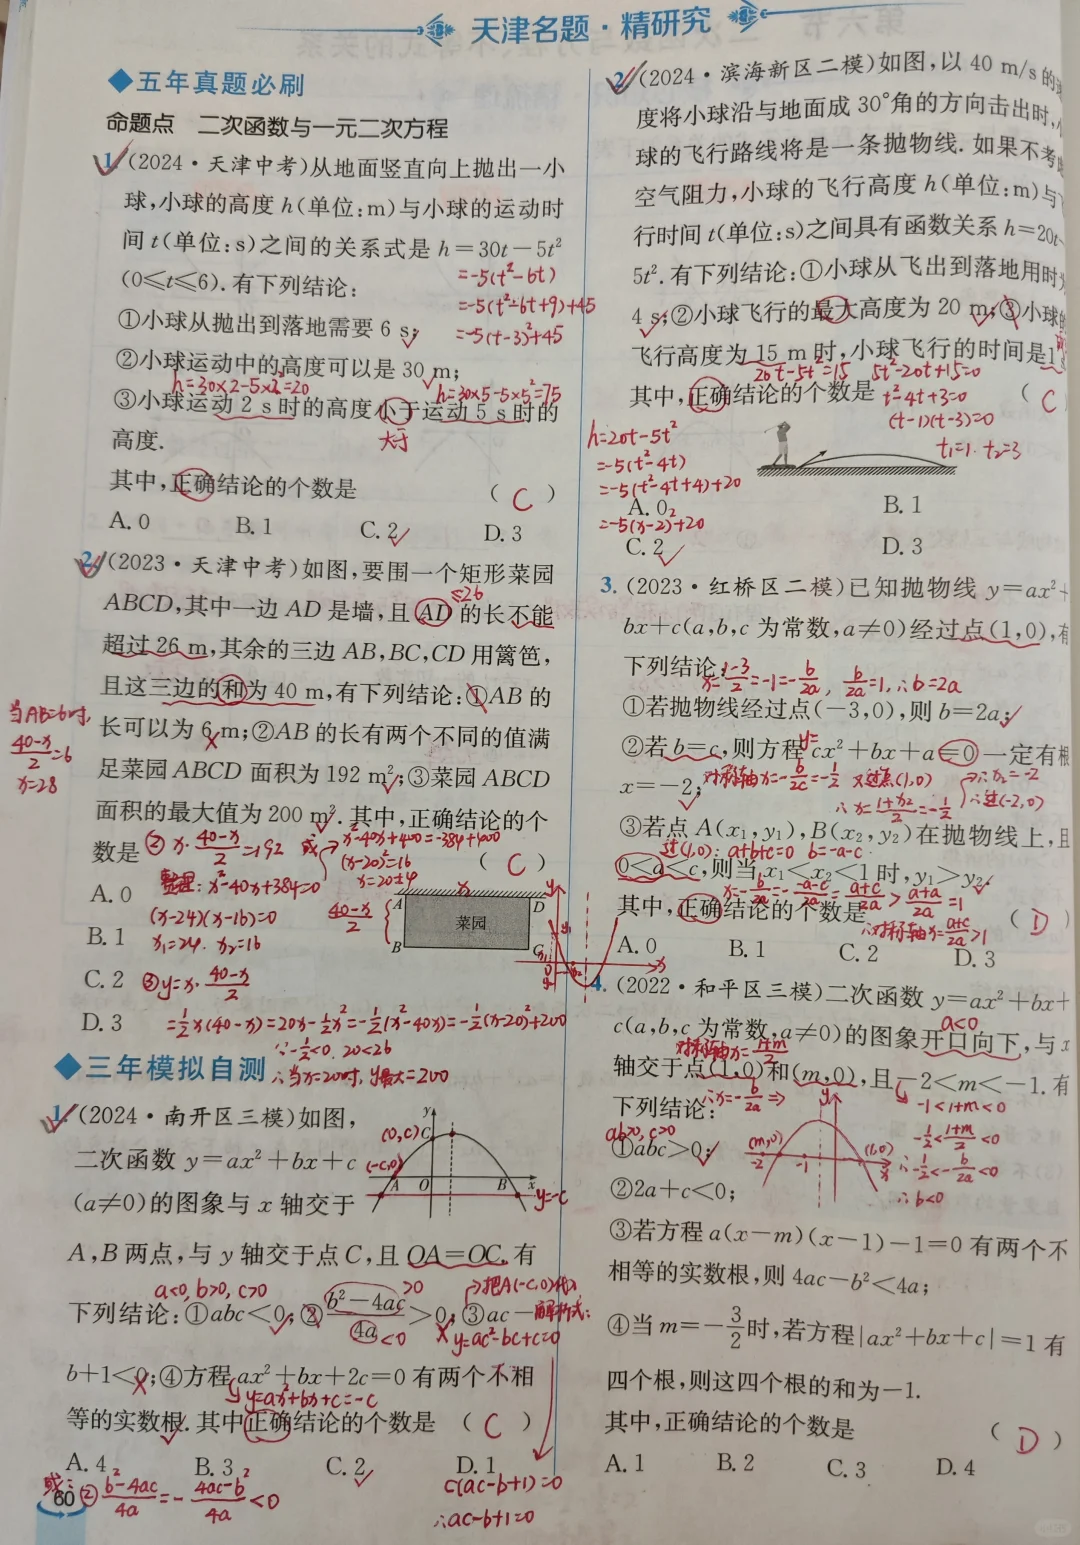 天津名题·精研究
◆五年真题必刷
命题点 二次函数与一元二次方程
1.(2024·天津中考)从地面竖直向上抛出一小
球,小球的高度h(单位:m)与小球的运动时
间t(单位:s)之间的关系式是h=30t-5t²
(0≤t≤6).有下列结论:
=-5(t²-6t)
=-5(t²-6t+9)+45
=-5(t-3)²+45
①小球从抛出到落地需要6 s;
②小球运动中的高度可以是30 m;
h=30×2-5×2²=20
h=30×5-5×5²=75
③小球运动2 s时的高度小于运动5 s时的
大于
高度.
其中,正确结论的个数是 (C)
A.0 B.1 C.2 D.3
2.(2023·天津中考)如图,要围一个矩形菜园
≤26
ABCD,其中一边AD是墙,且AD的长不能
超过26 m,其余的三边AB,BC,CD用篱笆,
且这三边的和为40 m,有下列结论:①AB的
长可以为6 m;②AB的长有两个不同的值满
足菜园ABCD面积为192 m²;③菜园ABCD
面积的最大值为200 m².其中,正确结论的个
数是 (C)
当AB=6时,
(40-x)/2=6
x=28
②x·(40-x)/2=192
整理:x²-40x+384=0
(x-24)(x-16)=0
x₁=24. x₂=16
或
x²-40x+400=-384+400
(x-20)²=16
x=20±4
A.0
B.1
C.2
D.3
(40-x)/2
x
A D
菜园
B C
③y=x·(40-x)/2
=½x(40-x)=20x-½x²=-½(x²-40x)=-½(x-20)²+200
∵-½<0, 20<26
∴当x=20时,y最大=200
◆三年模拟自测
1.(2024·南开区三模)如图,
二次函数y=ax²+bx+c
(a≠0)的图象与x轴交于
A,B两点,与y轴交于点C,且OA=OC.有
y
(0,c)C
(-c,0)
A O B x
y=-c
a<0,b>0,c>0
>0
把A(-c,0)代入
下列结论:①abc<0;②(b²-4ac)/4a>0;③ac-
<0
解析式:
y=ac²-bc+c=0
b+1<0;④方程ax²+bx+2c=0有两个不相
y=ax²+bx+c=-c
等的实数根.其中正确结论的个数是 (C)
A.4 B.3 C.2 D.1
或:②(b²-4ac)/4a=-(4ac-b²)/4a<0
c(ac-b+1)=0
∴ac-b+1=0
60
2.(2024·滨海新区二模)如图,以40 m/s的
度将小球沿与地面成30°角的方向击出时,
球的飞行路线将是一条抛物线.如果不考
空气阻力,小球的飞行高度h(单位:m)与
行时间t(单位:s)之间具有函数关系h=20t-
5t².有下列结论:①小球从飞出到落地用时
4 s;②小球飞行的最大高度为20 m;③小球
飞行高度为15 m时,小球飞行的时间是1 s
20t-5t²=15
5t²-20t+15=0
其中,正确结论的个数是 (C
t²-4t+3=0
(t-1)(t-3)=0
t₁=1. t₂=3
h=20t-5t²
=-5(t²-4t)
=-5(t²-4t+4)+20
=-5(x-2)²+20
A.0 B.1
C.2 D.3
3.(2023·红桥区二模)已知抛物线y=ax²+
bx+c(a,b,c为常数,a≠0)经过点(1,0),有
下列结论:
x=(1-3)/2=-1=-b/2a, b/2a=1,∴b=2a
①若抛物线经过点(-3,0),则b=2a;
y=
②若b=c,则方程cx²+bx+a=0一定有根
x=-2;
对称轴x=-b/2c=-½ 又过点(1,0)
∴x=(1+x₂)/2=-½
∴x₂=-2
∴过(-2,0)
③若点A(x₁,y₁),B(x₂,y₂)在抛物线上,且
过(1,0): a+b+c=0 b=-a-c
0<a<c,则当x₁<x₂<1时,y₁>y₂
x=-b/2a=-(-a-c)/2a=(a+c)/2a>(a+a)/2a=1
其中,正确结论的个数是 (D)
∴对称轴x=(a+c)/2a>1
A.0 B.1 C.2 D.3
4.(2022·和平区三模)二次函数y=ax²+bx+
c(a,b,c为常数,a≠0)的图象开口向下,与x
a<0
对称轴x=(1+m)/2
轴交于点(1,0)和(m,0),且-2<m<-1.有
∴x=-b/2a ⇒
-1<1+m<0
下列结论:
-½<(1+m)/2<0
∴-½<-b/2a<0
∴b<0
ab>0,c>0
①abc>0;
y
(m,0)
-2 -1
(1,0)
x
②2a+c<0;
③若方程a(x-m)(x-1)-1=0有两个不
相等的实数根,则4ac-b²<4a;
④当m=-3/2时,若方程|ax²+bx+c|=1有
四个根,则这四个根的和为-1.
其中,正确结论的个数是 (D)
A.1 B.2 C.3 D.4